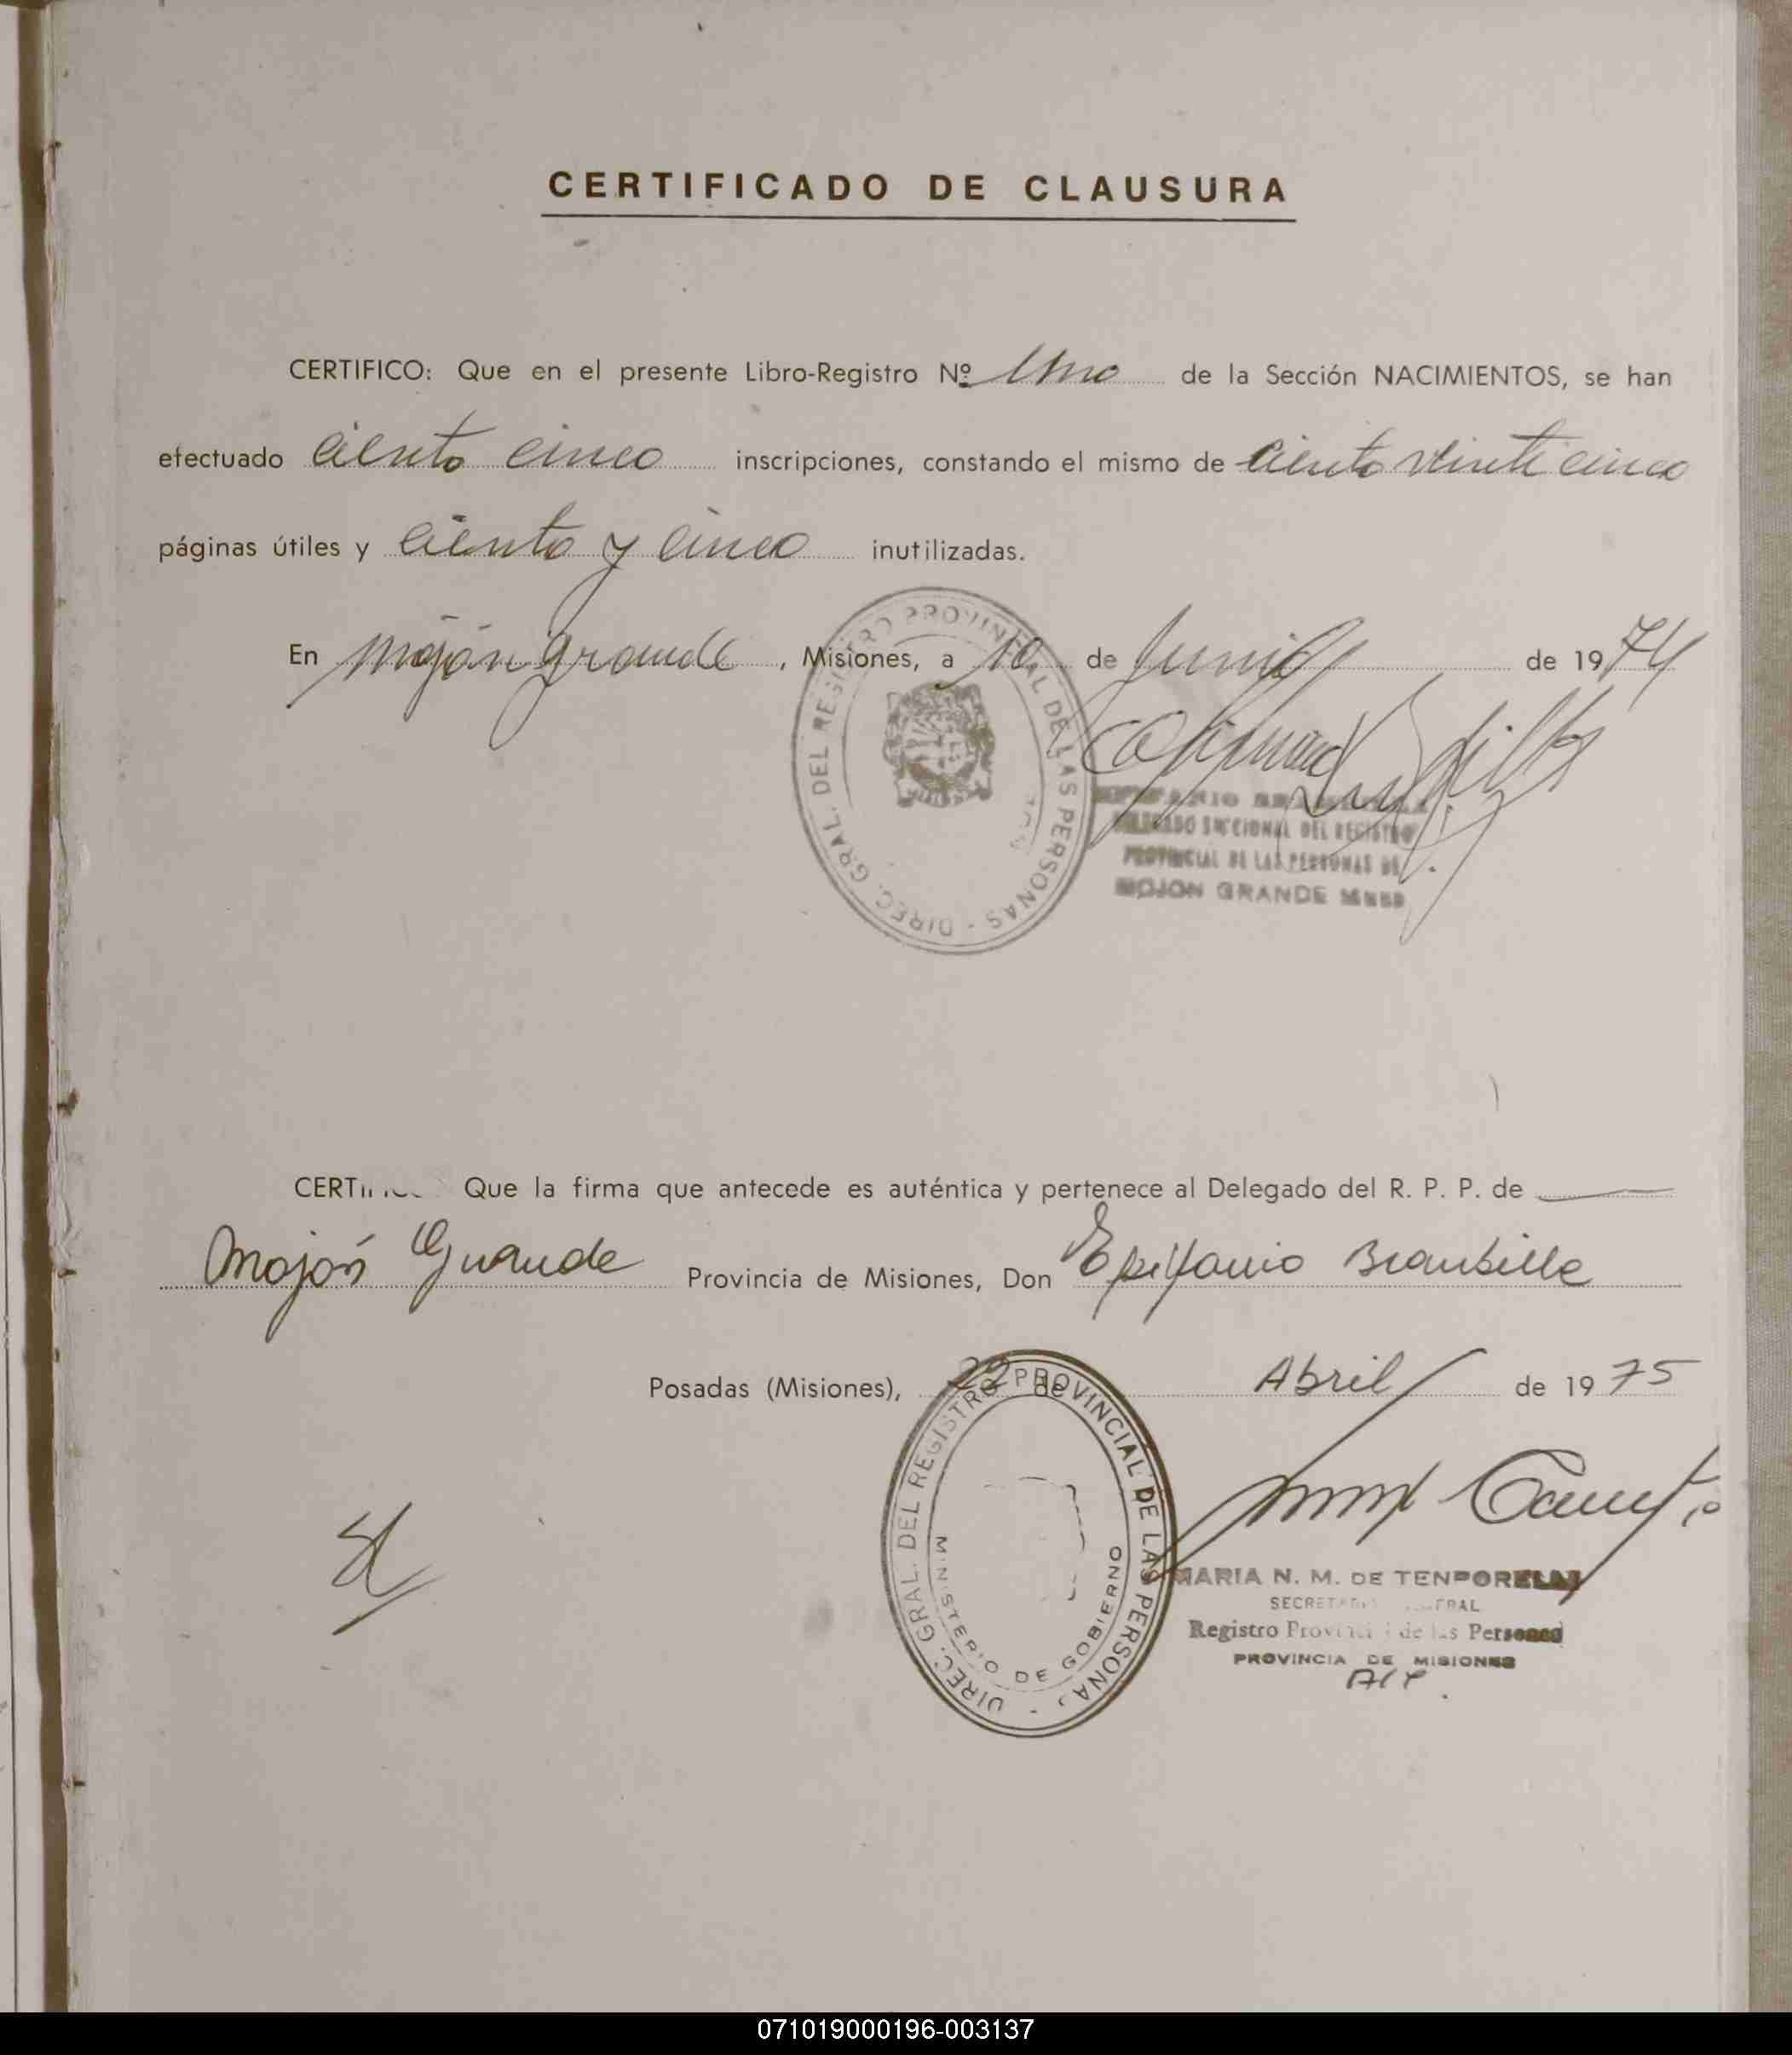 CERTIFICADO DE CLAUSURA
CERTIFICO: Que en el presente Libro-Registro Nº Uno de la Sección NACIMIENTOS, se han
efectuado ciento cinco inscripciones, constando el mismo de ciento veinte cinco
páginas útiles y ciento y cinco inutilizadas.
En Mojón grande, Misiones, a 10 de Junio de 1974
DIREC. GRAL. DEL REGISTRO PROVINCIAL DE LAS PERSONAS -
SECCIONAL DEL REGISTRO
PROVINCIAL DE LAS PERSONAS DE
MOJON GRANDE
Que la firma que antecede es auténtica y pertenece al Delegado del R. P. P. de
Mojón Grande Provincia de Misiones, Don Epifanio Brambilla
Posadas (Misiones), 22 de Abril de 1975
DIREC. GRAL. DEL REGISTRO PROVINCIAL DE LAS PERSONAS -
MINISTERIO DE GOBIERNO
MARIA N. M. DE TENPORELLI
Registro Provincial de las Personas
PROVINCIA DE MISIONES
071019000196-003137